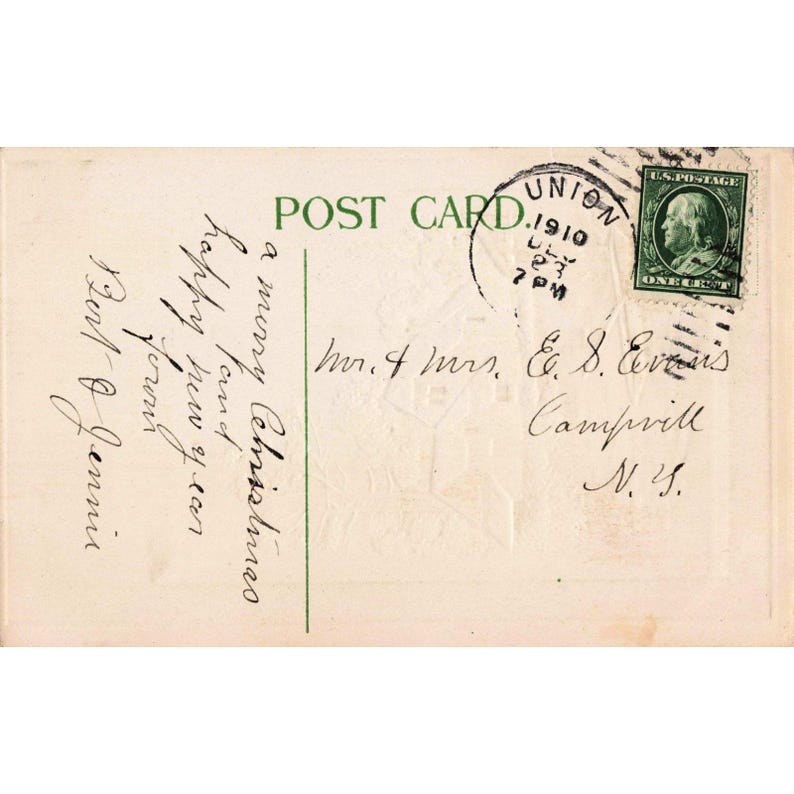 POST CARD.
UNION
1910
DEC
23
7 PM
U.S. POSTAGE
ONE CENT
a merry Christmas
and
happy new year
from
Bert & Jennie
Mr. & Mrs. E. S. Evans
Campvill
N. Y.